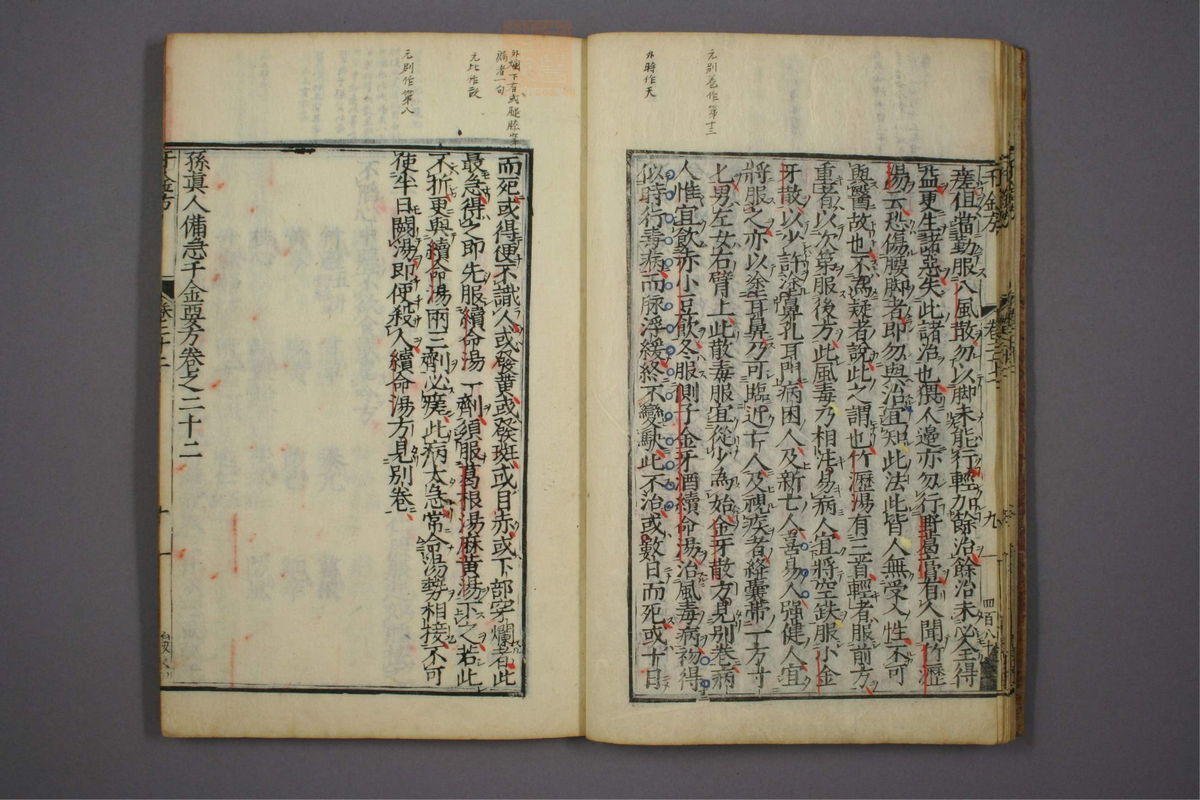 元别卷作第十三
外時作天
瘥但當勤服八風散勿以脚未能行輕加餘治餘治未必全得
益更生諸惡失此諸治也偶人邊亦勿行野葛膏有人聞竹瀝
湯云恐傷腰脚者即勿與治宜知此法此皆人無受人性不可
與醫故也不為疑者說此之謂也竹瀝湯有三首輕者服前方
重者以次第服後方此風毒乃相注易病人宜將空缺服小金
牙散以少許塗鼻孔耳門病困人及新亡人喜易人強健人宜
將服之亦以塗耳鼻乃可臨近亡人及視疾者絳囊帶一方寸
七男左女右臂上此散毒服宜從少為始金牙散方見别卷病
人惟宜飲赤小豆飲冬服側子金牙酒續命湯治風毒病初得
似時行毒病而脉浮緩終不變駃此不治或數日而死或十日
千金方
卷二十二
九
四百八十
元别作第八
元比作散
而死或得便不識人或發黄或發斑或目赤或下部穿爛者此
最急得之即先服續命湯一劑須服葛根湯麻黄湯下之若此
不折更與續命湯兩三劑必瘥此病大急常令湯勢相接不可
使半日闕湯即便殺人續命湯方見别卷
孫真人備急千金要方卷之二十二
千金方
卷二十二
十